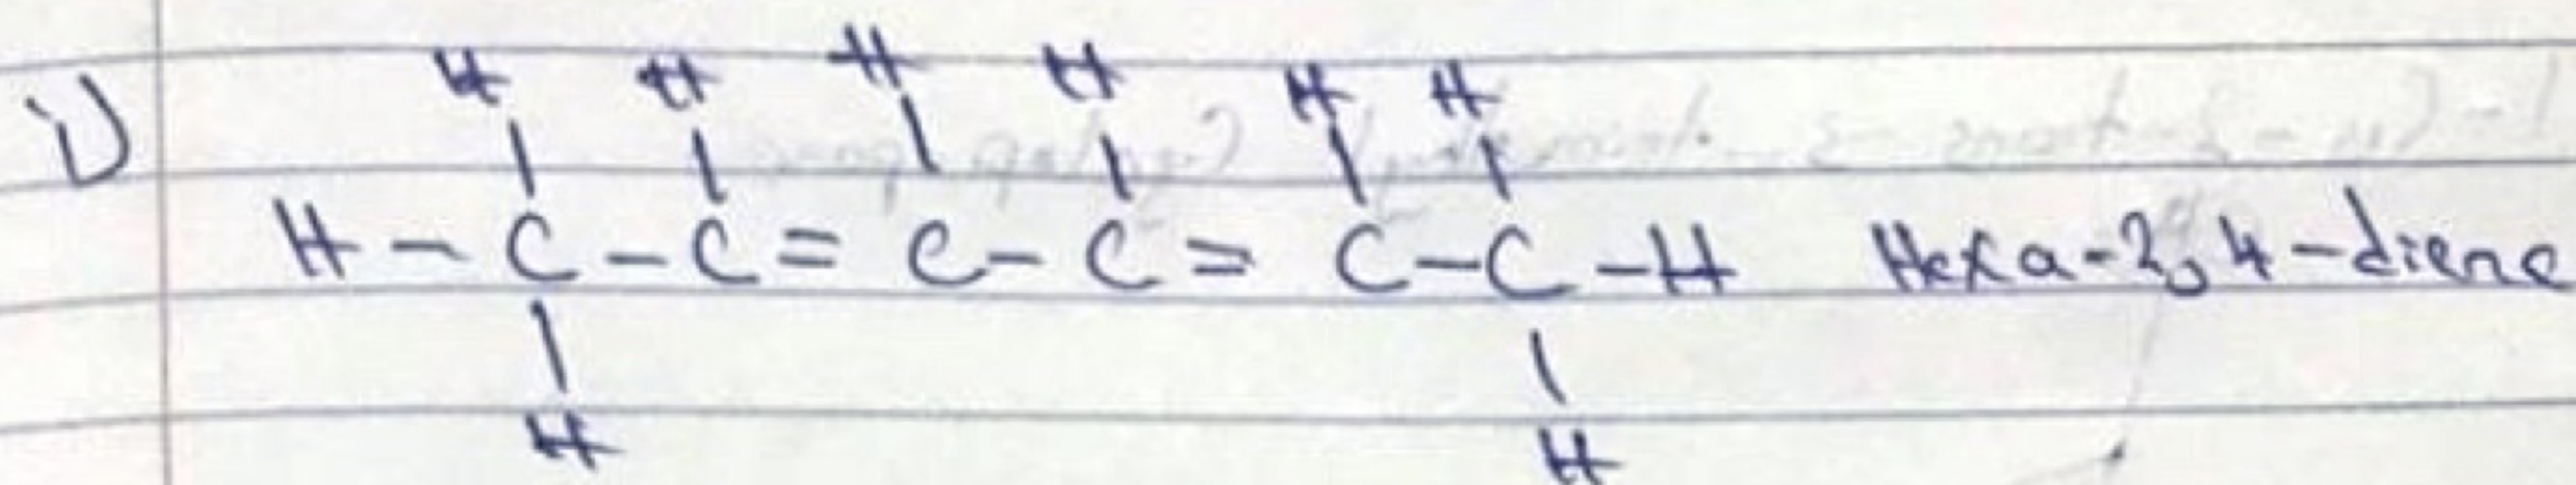 i)
H H H H H H
H - C - C = C - C = C - C - H Hexa-2,4-diene
H H